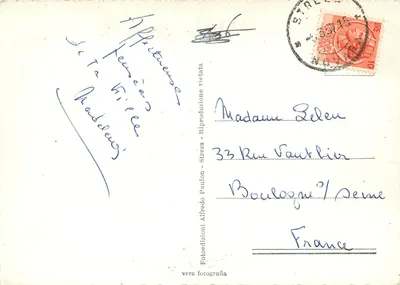 Affectueuses
pensées
de ta fille
Madeleine
Madame Leleu
33 Rue Vauthier
Boulogne s/ Seine
France
Fotoedizioni Alfredo Paulon - Stresa - Riproduzione vietata
vera fotografia
STRESA